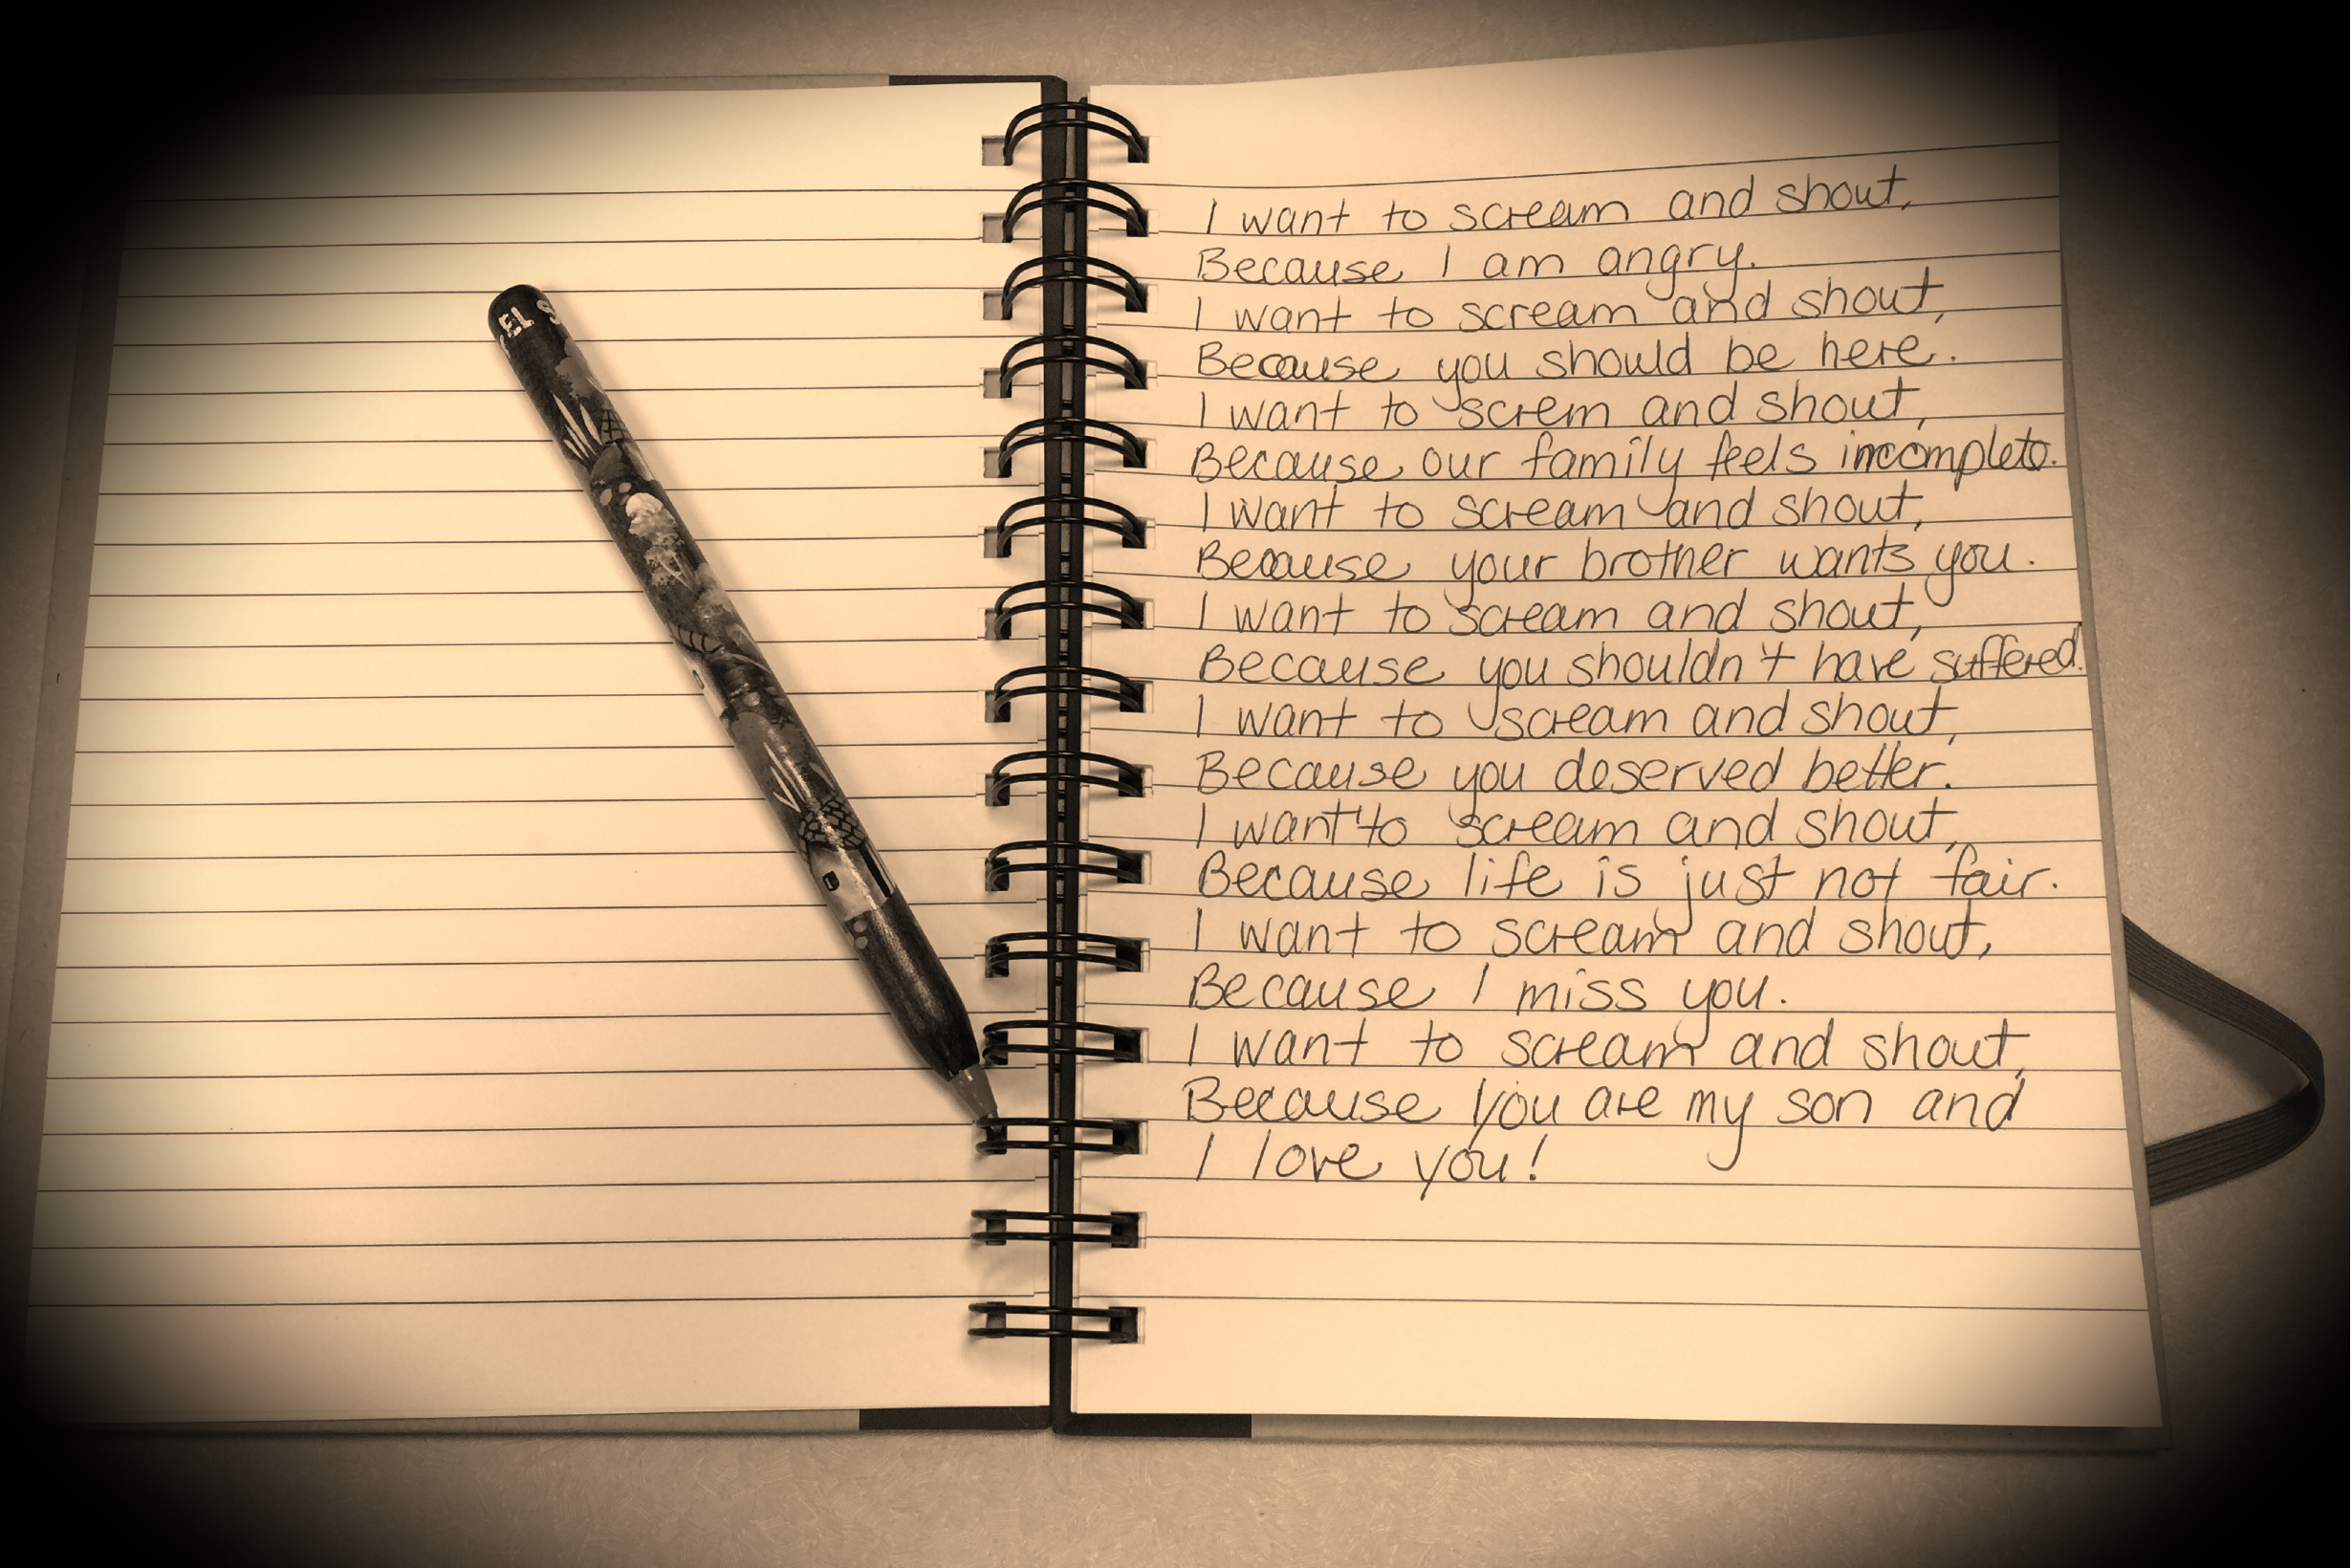 EL S
I want to scream and shout,
Because I am angry.
I want to scream and shout,
Because you should be here.
I want to screm and shout,
Because our family feels incomplete.
I want to scream and shout,
Because your brother wants you.
I want to scream and shout,
Because you shouldn't have suffered.
I want to scream and shout,
Because you deserved better.
I want to scream and shout,
Because life is just not fair.
I want to scream and shout,
Because I miss you.
I want to scream and shout,
Because you are my son and
I love you!